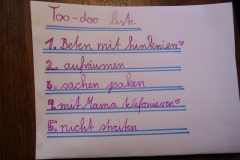 Too-doo liste
1. Beten mit hinknien
2. aufräumen
3. sachen paken
4. mit Mama telefonieren
5. nicht streiten